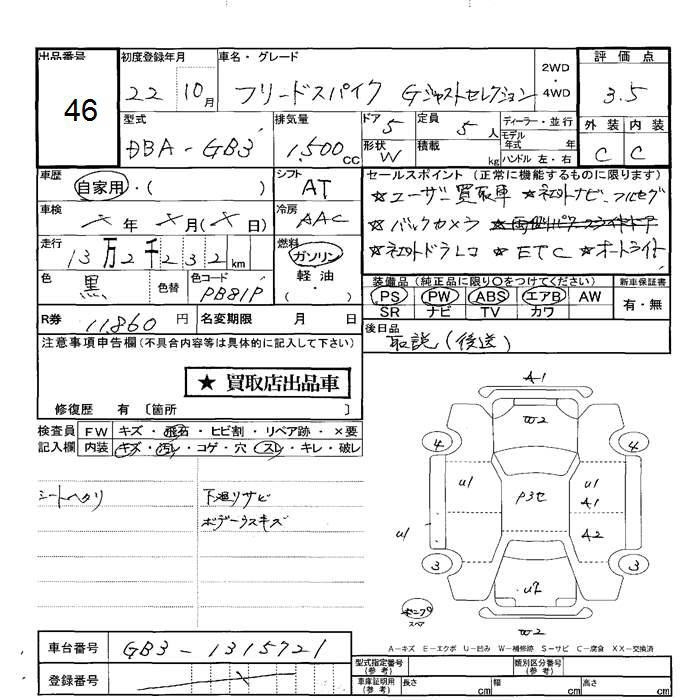 出品番号
46
初度登録年月
22 10月
車名・グレード
フリードスパイク Gジャストセレクション
2WD・4WD
評価点
3.5
型式
DBA-GB3
排気量
1,500cc
ドア 5
形状 W
定員 5人
積載 kg
ディーラー・並行
モデル年式 年
ハンドル 左・右
外装 内装
C C
車歴
自家用・( )
シフト
AT
車検
× 年 × 月(× 日)
冷房
AAC
走行
13万2千232km
燃料
ガソリン
軽油
・( )
色
黒
色替
色コード
PB81P
R券 11,860円
名変期限 月 日
セールスポイント(正常に機能するものに限ります)
☆ユーザー買取車 ☆社外ナビ、フルセグ
☆バックカメラ
☆社外ドラレコ ☆ETC ☆オートライト
装備品(純正品に限り○をつけてください)
PS PW ABS エアB AW
SR ナビ TV カワ
新車保証書
有・無
後日品
取説(後送)
注意事項申告欄(不具合内容等は具体的に記入して下さい)
★ 買取店出品車
修復歴 有〔箇所 〕
検査員記入欄
FW キズ・飛石・ヒビ割・リペア跡・×要
内装 キズ・汚レ・コゲ・穴・スレ・キレ・破レ
シートヘタリ
下廻りサビ
ボデーウスキズ
A1
W2
4 4
U1 U1
P3セ
A1
U1 A2
3 3
W2
A-キズ E-エクボ U-凹み W-補修跡 S-サビ C-腐食 XX-交換済
車台番号 GB3-1315721
登録番号
型式指定番号(参考)
類別区分番号(参考)
車庫証明用(参考)
長さ cm 幅 cm 高さ cm